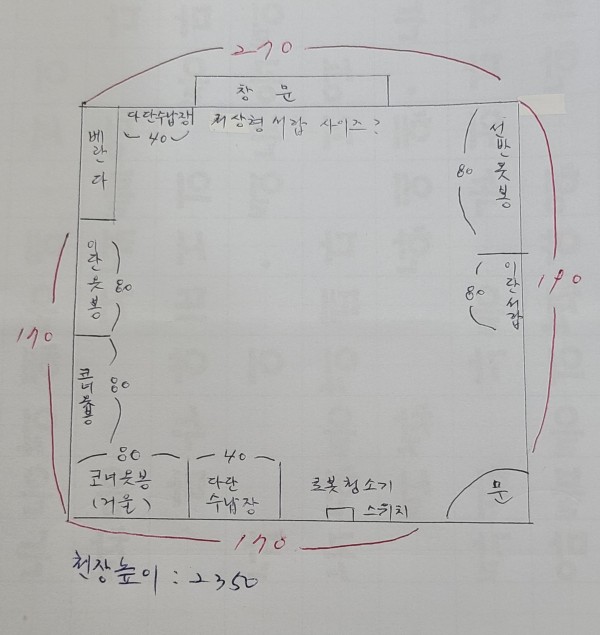 270
창문
다단수납장
40
최상형 서랍 사이즈?
베란다
선반옷봉
80
이단옷봉
80
이단서랍
80
190
170
코너옷봉
80
80
코너옷봉
(거울)
40
다단
수납장
로봇청소기
스위치
문
170
천장높이 : 2350